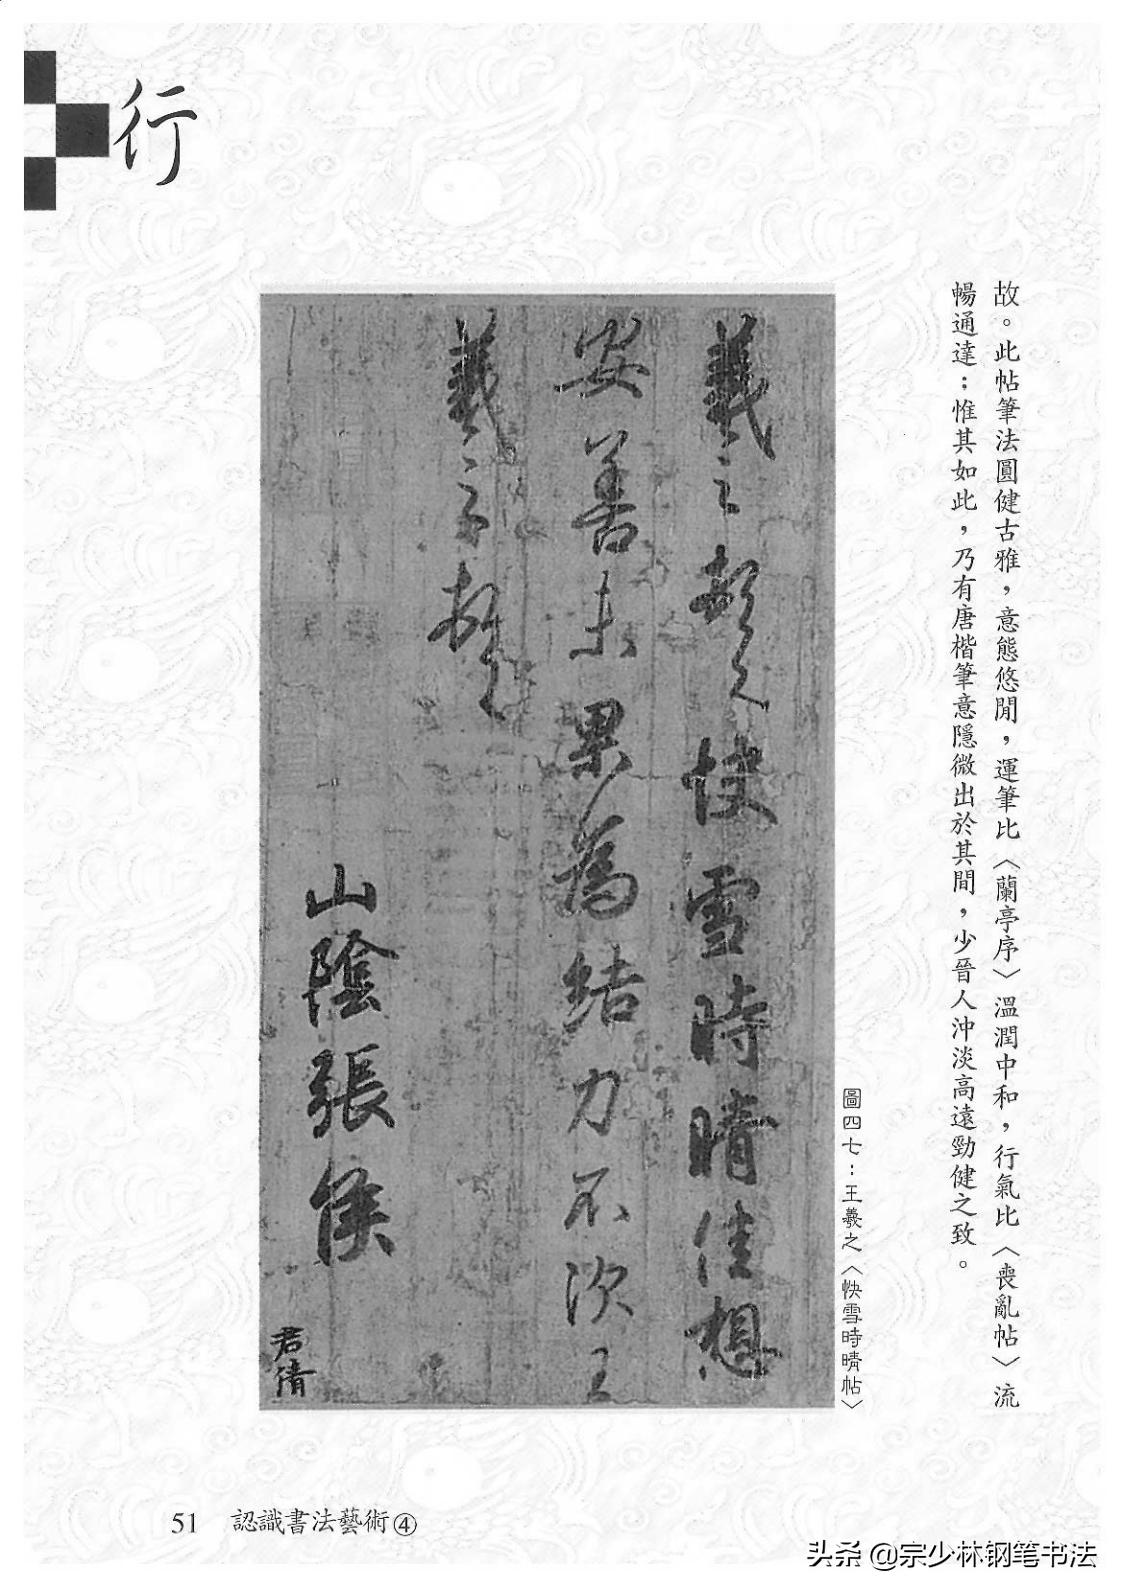 行
故。此帖筆法圓健古雅，意態悠閒，運筆比〈蘭亭序〉溫潤中和，行氣比〈喪亂帖〉流
暢通達；惟其如此，乃有唐楷筆意隱微出於其間，少晉人沖淡高遠勁健之致。
圖四七：王羲之〈快雪時晴帖〉
羲之頓首快雪時晴佳想
安善未果為結力不次王
羲之頓首
山陰張侯
君倩
51 認識書法藝術④
头条 @宗少林钢笔书法